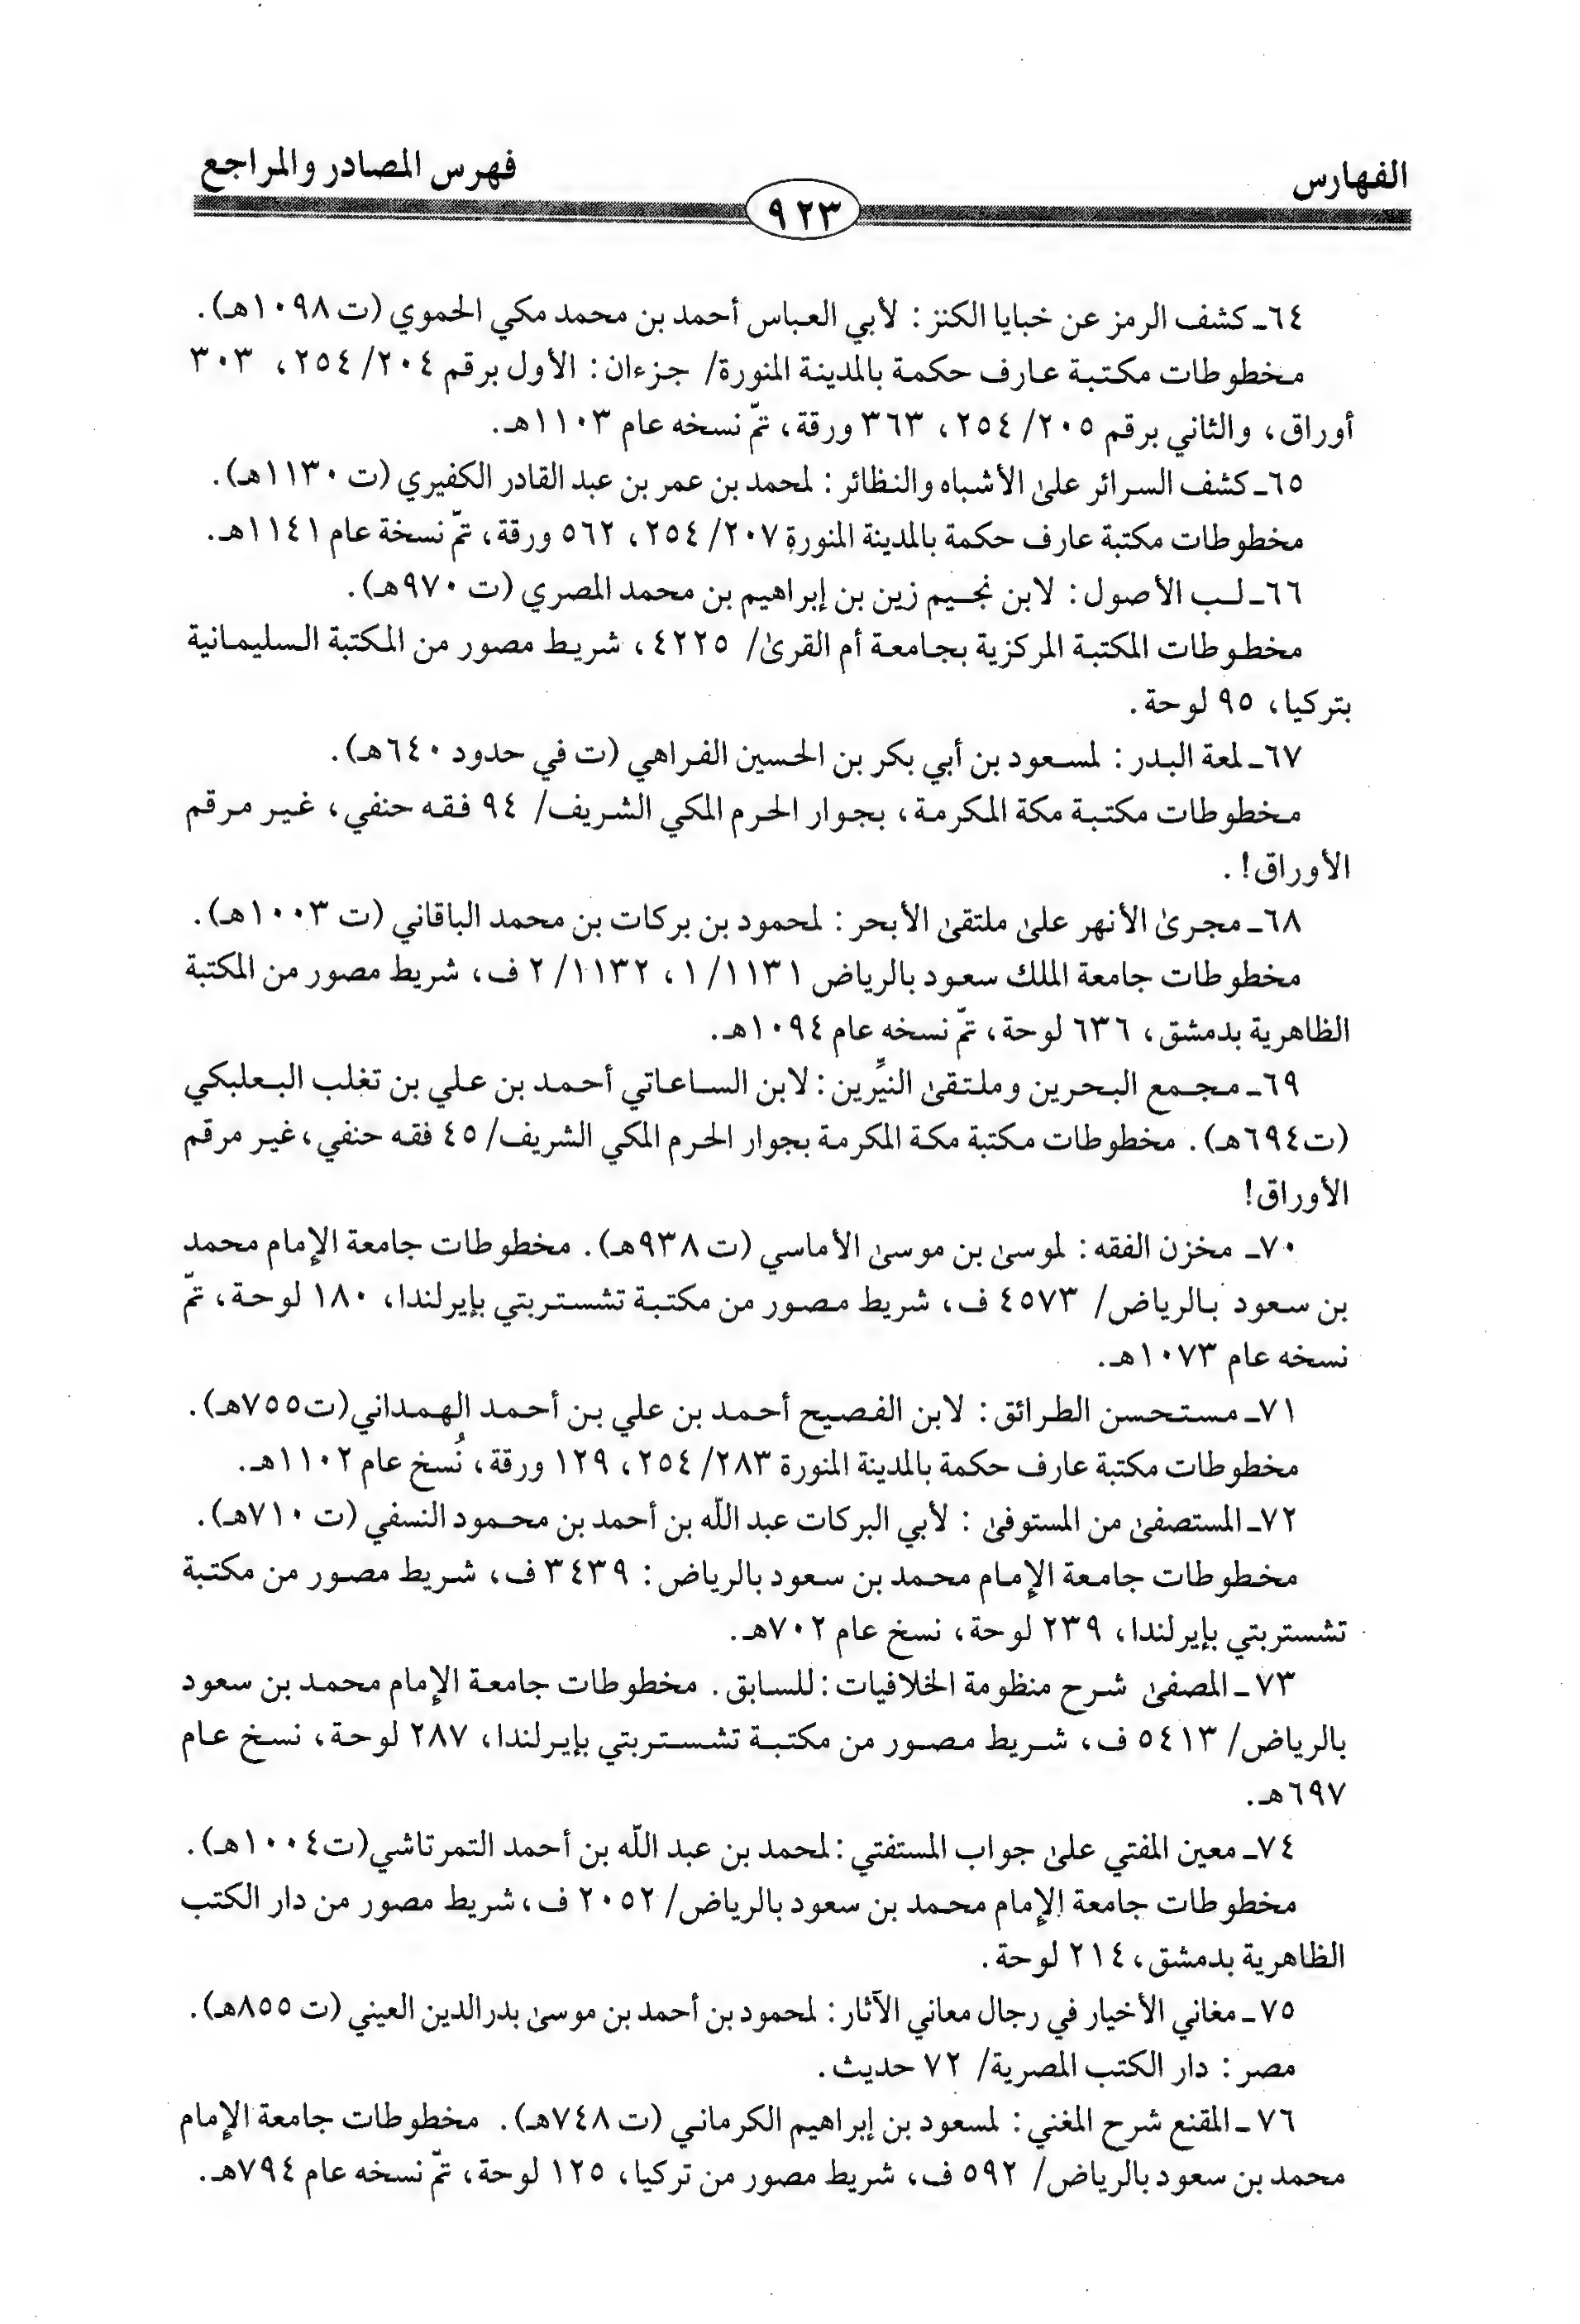 الفهارس
فهرس المصادر والمراجع
٩٢٣
٦٤ـ كشف الرمز عن خبايا الكنز: لأبي العباس أحمد بن محمد مكي الحموي (ت ١٠٩٨هـ).
مخطوطات مكتبة عارف حكمة بالمدينة المنورة/ جزءان: الأول برقم ٢٠٤/ ٢٥٤، ٣٠٣
أوراق، والثاني برقم ٢٠٥/ ٢٥٤، ٣٦٣ ورقة، تمّ نسخه عام ١١٠٣هـ.
٦٥ـ كشف السرائر علىٰ الأشباه والنظائر: لمحمد بن عمر بن عبد القادر الكفيري (ت ١١٣٠هـ).
مخطوطات مكتبة عارف حكمة بالمدينة المنورة ٢٠٧/ ٢٥٤، ٥٦٢ ورقة، تمّ نسخة عام ١١٤١هـ.
٦٦ـ لب الأصول: لابن نجيم زين بن إبراهيم بن محمد المصري (ت ٩٧٠هـ).
مخطوطات المكتبة المركزية بجامعة أم القرىٰ/ ٤٢٢٥، شريط مصور من المكتبة السليمانية
بتركيا، ٩٥ لوحة.
٦٧ـ لمعة البدر: لمسعود بن أبي بكر بن الحسين الفراهي (ت في حدود ٦٤٠هـ).
مخطوطات مكتبة مكة المكرمة، بجوار الحرم المكي الشريف/ ٩٤ فقه حنفي، غير مرقم
الأوراق!.
٦٨ـ مجرىٰ الأنهر علىٰ ملتقىٰ الأبحر: لمحمود بن بركات بن محمد الباقاني (ت ١٠٠٣هـ).
مخطوطات جامعة الملك سعود بالرياض ١١٣١/ ١، ١١٣٢/ ٢ ف، شريط مصور من المكتبة
الظاهرية بدمشق، ٦٣٦ لوحة، تمّ نسخه عام ١٠٩٤هـ.
٦٩ـ مجمع البحرين وملتقىٰ النيِّرين: لابن الساعاتي أحمد بن علي بن تغلب البعلبكي
(ت٦٩٤هـ). مخطوطات مكتبة مكة المكرمة بجوار الحرم المكي الشريف/ ٤٥ فقه حنفي، غير مرقم
الأوراق!
٧٠ـ مخزن الفقه: لموسىٰ بن موسىٰ الأماسي (ت ٩٣٨هـ). مخطوطات جامعة الإمام محمد
بن سعود بالرياض/ ٤٥٧٣ ف، شريط مصور من مكتبة تشستربتي بإيرلندا، ١٨٠ لوحة، تمّ
نسخه عام ١٠٧٣هـ.
٧١ـ مستحسن الطرائق: لابن الفصيح أحمد بن علي بن أحمد الهمداني(ت٧٥٥هـ).
مخطوطات مكتبة عارف حكمة بالمدينة المنورة ٢٨٣/ ٢٥٤، ١٢٩ ورقة، نُسخ عام ١١٠٢هـ.
٧٢ـ المستصفىٰ من المستوفىٰ: لأبي البركات عبد اللّه بن أحمد بن محمود النسفي (ت ٧١٠هـ).
مخطوطات جامعة الإمام محمد بن سعود بالرياض: ٣٤٣٩ ف، شريط مصور من مكتبة
تشستربتي بإيرلندا، ٢٣٩ لوحة، نسخ عام ٧٠٢هـ.
٧٣ـ المصفىٰ شرح منظومة الخلافيات: للسابق. مخطوطات جامعة الإمام محمد بن سعود
بالرياض/ ٥٤١٣ ف، شريط مصور من مكتبة تشستربتي بإيرلندا، ٢٨٧ لوحة، نسخ عام
٦٩٧هـ.
٧٤ـ معين المفتي علىٰ جواب المستفتي: لمحمد بن عبد اللّه بن أحمد التمرتاشي(ت١٠٠٤هـ).
مخطوطات جامعة الإمام محمد بن سعود بالرياض/ ٢٠٥٢ ف، شريط مصور من دار الكتب
الظاهرية بدمشق، ٢١٤ لوحة.
٧٥ـ مغاني الأخيار في رجال معاني الآثار: لمحمود بن أحمد بن موسىٰ بدرالدين العيني (ت ٨٥٥هـ).
مصر: دار الكتب المصرية/ ٧٢ حديث.
٧٦ـ المقنع شرح المغني: لمسعود بن إبراهيم الكرماني (ت ٧٤٨هـ). مخطوطات جامعة الإمام
محمد بن سعود بالرياض/ ٥٩٢ ف، شريط مصور من تركيا، ١٢٥ لوحة، تمّ نسخه عام ٧٩٤هـ.